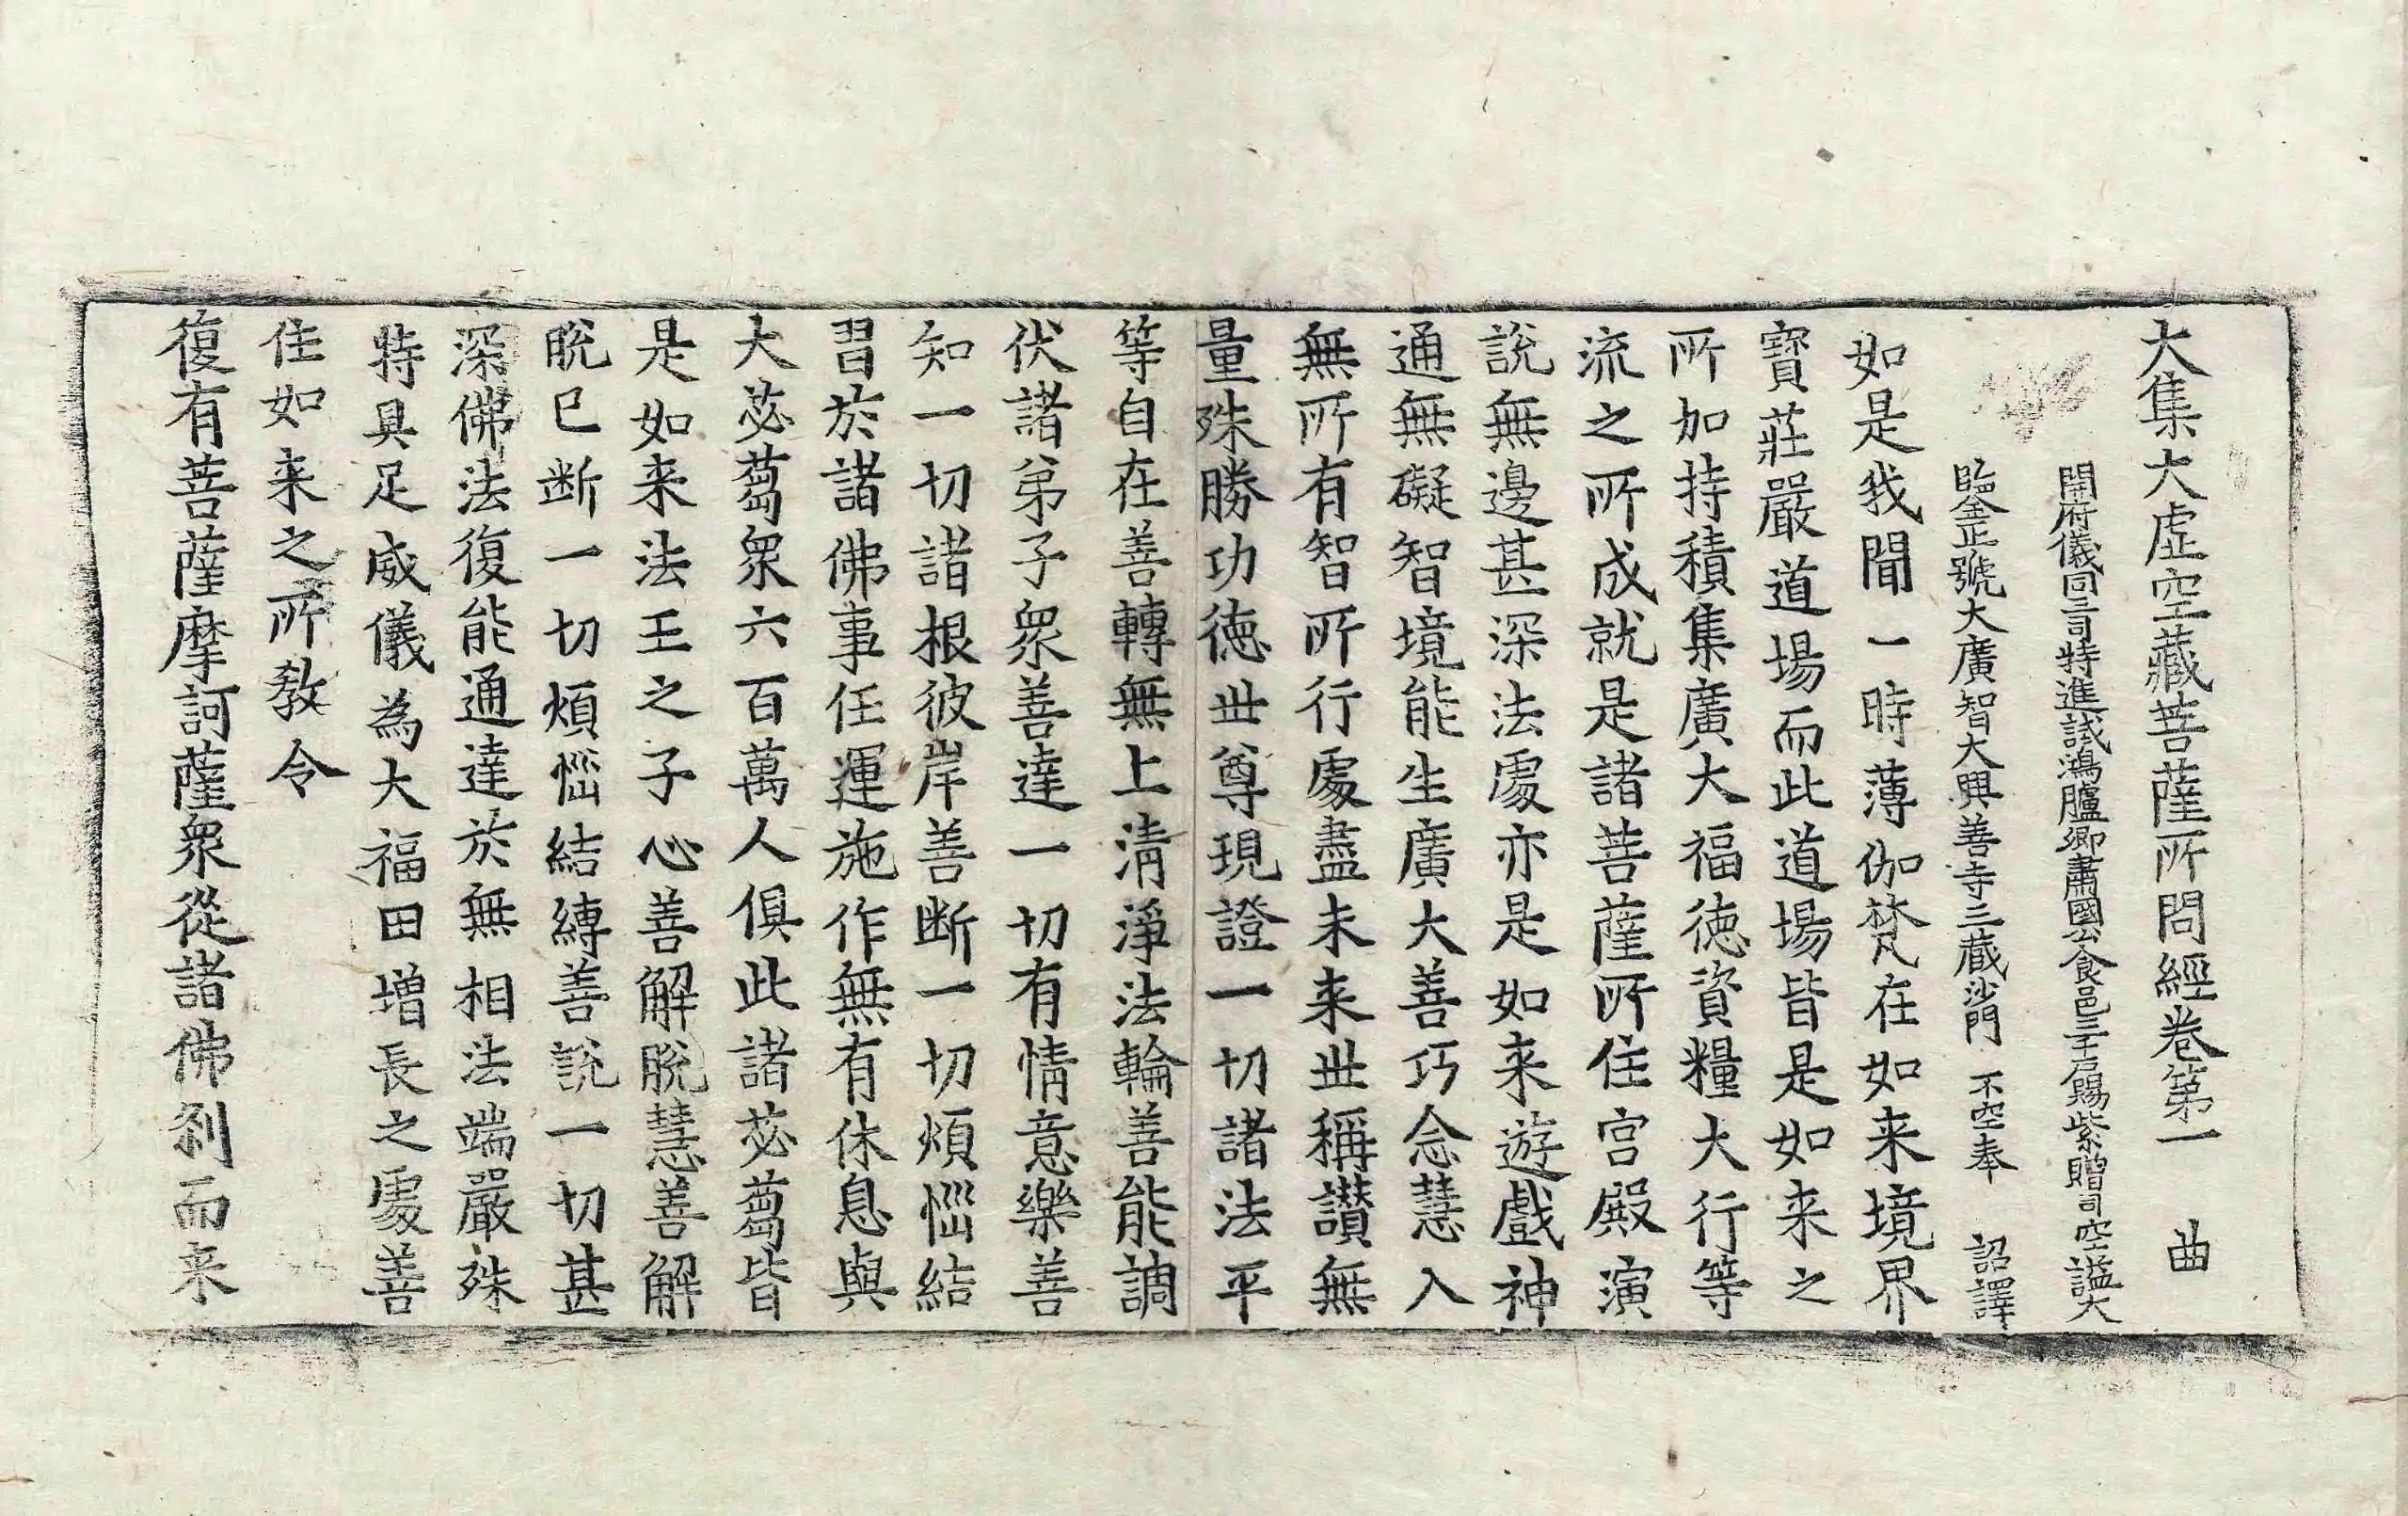 大集大虛空藏菩薩所問經卷第一　曲
開府儀同三司特進試鴻臚卿肅國公食邑三千戶賜紫贈司空謚大
臨壑正號大廣智大興善寺三藏沙門　不空奉　詔譯
如是我聞一時薄伽梵在如来境界
寶莊嚴道場而此道場皆是如来之
所加持積集廣大福徳資糧大行等
流之所成就是諸菩薩所住宮殿演
說無邊甚深法處亦是如来遊戲神
通無礙智境能生廣大善巧念慧入
無所有智所行處盡未来世稱讃無
量殊勝功徳世尊現證一切諸法平
等自在善轉無上清淨法輪善能調
伏諸弟子衆善達一切有情意樂善
知一切諸根彼岸善断一切煩惱結
習於諸佛事任運施作無有休息與
大苾蒭衆六百萬人俱此諸苾蒭皆
是如来法王之子心善解脫慧善解
脫已断一切煩惱結縛善說一切甚
深佛法復能通達於無相法端嚴殊
特具足威儀為大福田增長之處善
住如来之所教令
復有菩薩摩訶薩衆從諸佛刹而来